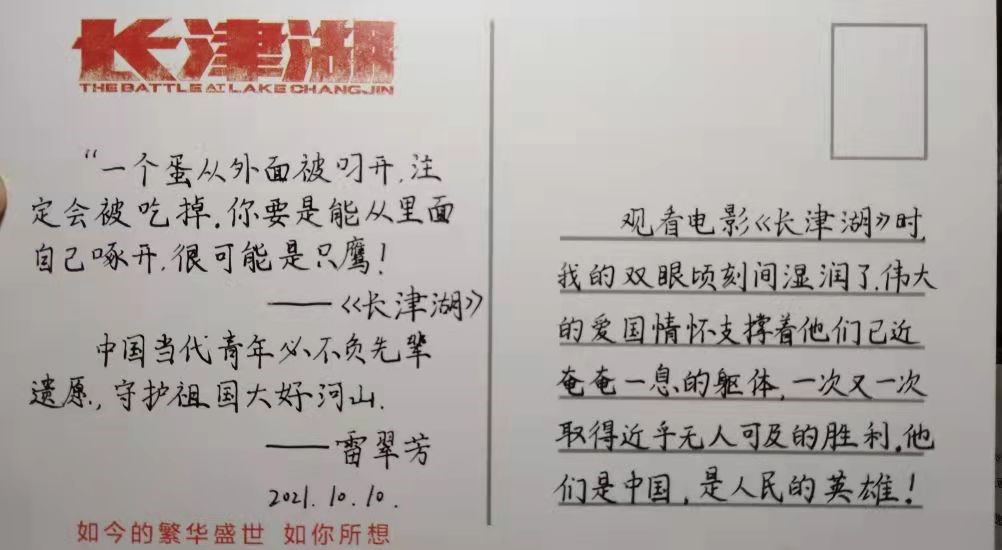 长津湖
THE BATTLE AT LAKE CHANGJIN
“一个蛋从外面被叼开,注
定会被吃掉.你要是能从里面
自己啄开,很可能是只鹰!
——《长津湖》
中国当代青年必不负先辈
遗愿.,守护祖国大好河山.
——雷翠芳
2021.10.10.
如今的繁华盛世 如你所想
观看电影《长津湖》时,
我的双眼顷刻间湿润了.伟大
的爱国情怀支撑着他们已近
奄奄一息的躯体,一次又一次
取得近乎无人可及的胜利.他
们是中国,是人民的英雄!